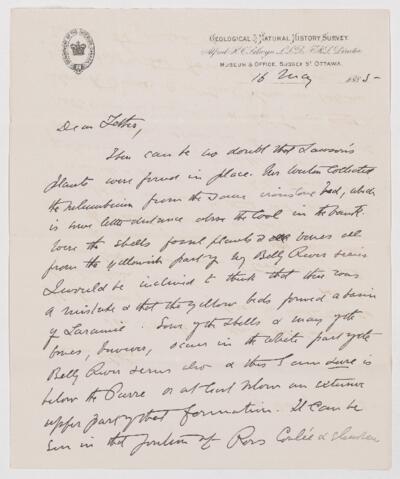 GEOLOGICAL & NATURAL HISTORY SURVEY.
Alfred R. C. Selwyn L.L.D. F.R.S. Director
MUSEUM & OFFICE, SUSSEX ST OTTAWA.
16 May 1885
Dear Father,
There can be no doubt that Lawson's
plants were found in place. Mr Weston collected
the nelumbium from the same ironstone bed, which
is some little distance above the Coal in the bank.
Were the shells fossil plants & bones all
from the yellowish part of the Belly River series
I would be inclined to think that there was
a mistake & that the yellow beds formed a basin
of Laramie. Some of the shells & many of the
bones, however, occur in the white part of the
Belly River series also & this I am sure is
below the Pierre or at least below an extensive
upper part of that formation. It can be
seen in that portion of Ross Coulée &